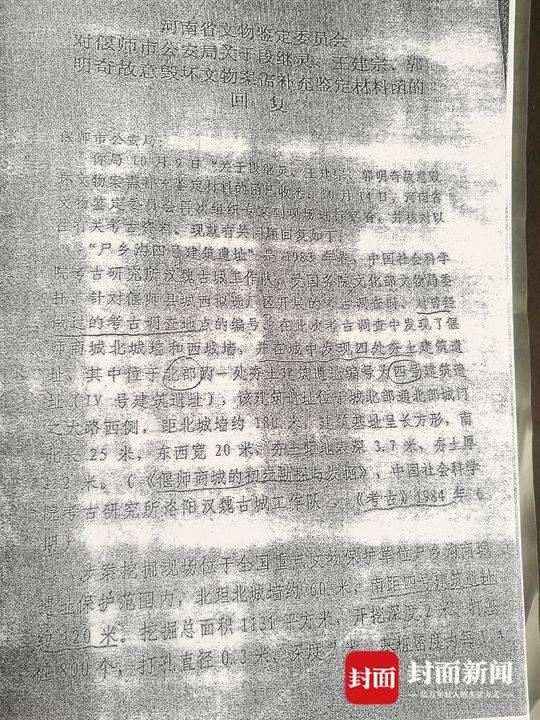 河南省文物鉴定委员会
对偃师市公安局关于段继灵、王建宗、郭
明奇故意毁坏文物案需补充鉴定材料函的
回 复
偃师市公安局:
你局10月9日“关于段继灵、王建宗、郭明奇故意毁
坏文物案需补充鉴定材料的函已收悉，10月14日，河南省
文物鉴定委员会再次组织专家到现场进行
有关考古资料，现就有关问题回复如下:
“尸乡沟四号建筑遗址”是1983年春，中国社会科学
院考古研究所汉魏古城工作队，受国务院文化部文物局委
托，针对偃师县城西拟建厂区开展的考古调查时，对曾经
的考古调查地点的编号。在此次考古调查中发现了偃
师商城北城墙和西城墙，并在城中发现四处夯土建筑遗
址。其中位于北部的一处夯土建筑遗址编号为四号建筑遗
址（IV号建筑遗址），该建筑遗址位于城北部通北部城门
之大路西侧，距北城墙约180米，建筑基址呈长方形，南
北长25米，东西宽20米，夯土距地表深3.7米，夯土厚
2米。（《偃师商城的初步勘探与发掘》，中国社会科学
院考古研究所洛阳汉魏古城工作队，《考古》1984年6
期）
涉案挖掘现场位于全国重点文物保护单位尸乡沟商城
遗址保护范围内，北距北城墙约60米，南距四号建筑遗址
约120米。挖掘总面积1131平方米，开挖深度2米，
桩800个，打孔直径0.3米，深度
封面 封面新闻
亿万年轻人的生活方式